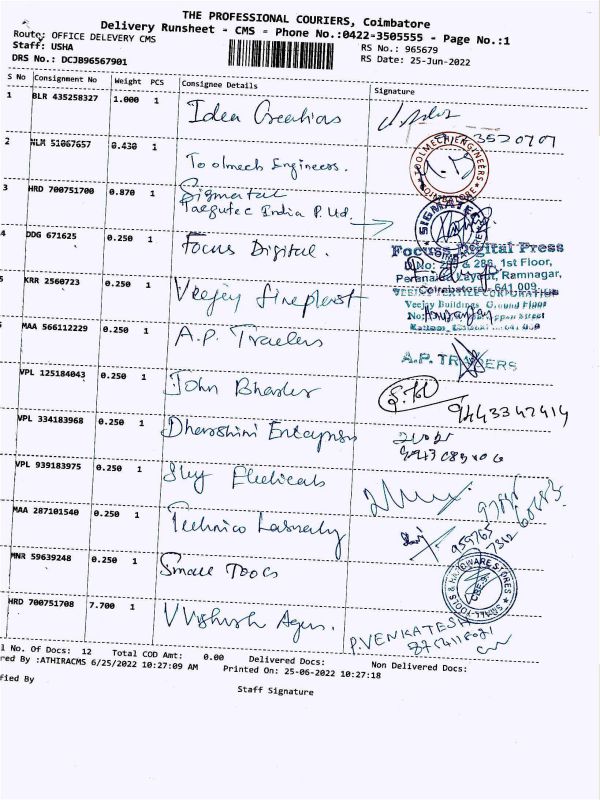 THE PROFESSIONAL COURIERS, Coimbatore
Delivery Runsheet - CMS - Phone No.:0422-3505555 - Page No.:1
Route: OFFICE DELEVERY CMS
RS No.: 965679
Staff: USHA
RS Date: 25-Jun-2022
DRS No.: DCJB96567901
S No Consignment No Weight PCS Consignee Details Signature
1 BLR 435258327 1.000 1 Idea Creations
2 NLM 51067657 0.430 1 Toolmech Engineers.
TOOLMECH ENGINEERS
3 HRD 700751700 0.870 1 Sigmatec
Taegutec India P. Ltd.
SIGMATEC
4 DDG 671625 0.250 1 Focus Digital.
Focus Digital Press
& 286, 1st Floor,
Ramnagar,
Coimbatore - 641 009
5 KRR 2560723 0.250 1 Veejay
VEEJAY TEXTILE CORPORATION
Veejay Buildings, Ground Floor
MAA 566112229 0.250 1 A.P. Traders
A.P. TRADERS
VPL 125184043 0.250 1 John
9443342414
VPL 334183968 0.250 1 Dharshini Enterprises
VPL 939183975 0.250 1 Sky Electricals
MAA 287101540 0.250 1 Technico
MNR 59639248 0.250 1 Small Tools
SMALL TOOLS & HARDWARE STORES
CBE-9
HRD 700751708 7.700 1
P. VENKATESH
l No. Of Docs: 12 Total COD Amt: 0.00 Delivered Docs: Non Delivered Docs:
red By :ATHIRACMS 6/25/2022 10:27:09 AM Printed On: 25-06-2022 10:27:18
fied By
Staff Signature